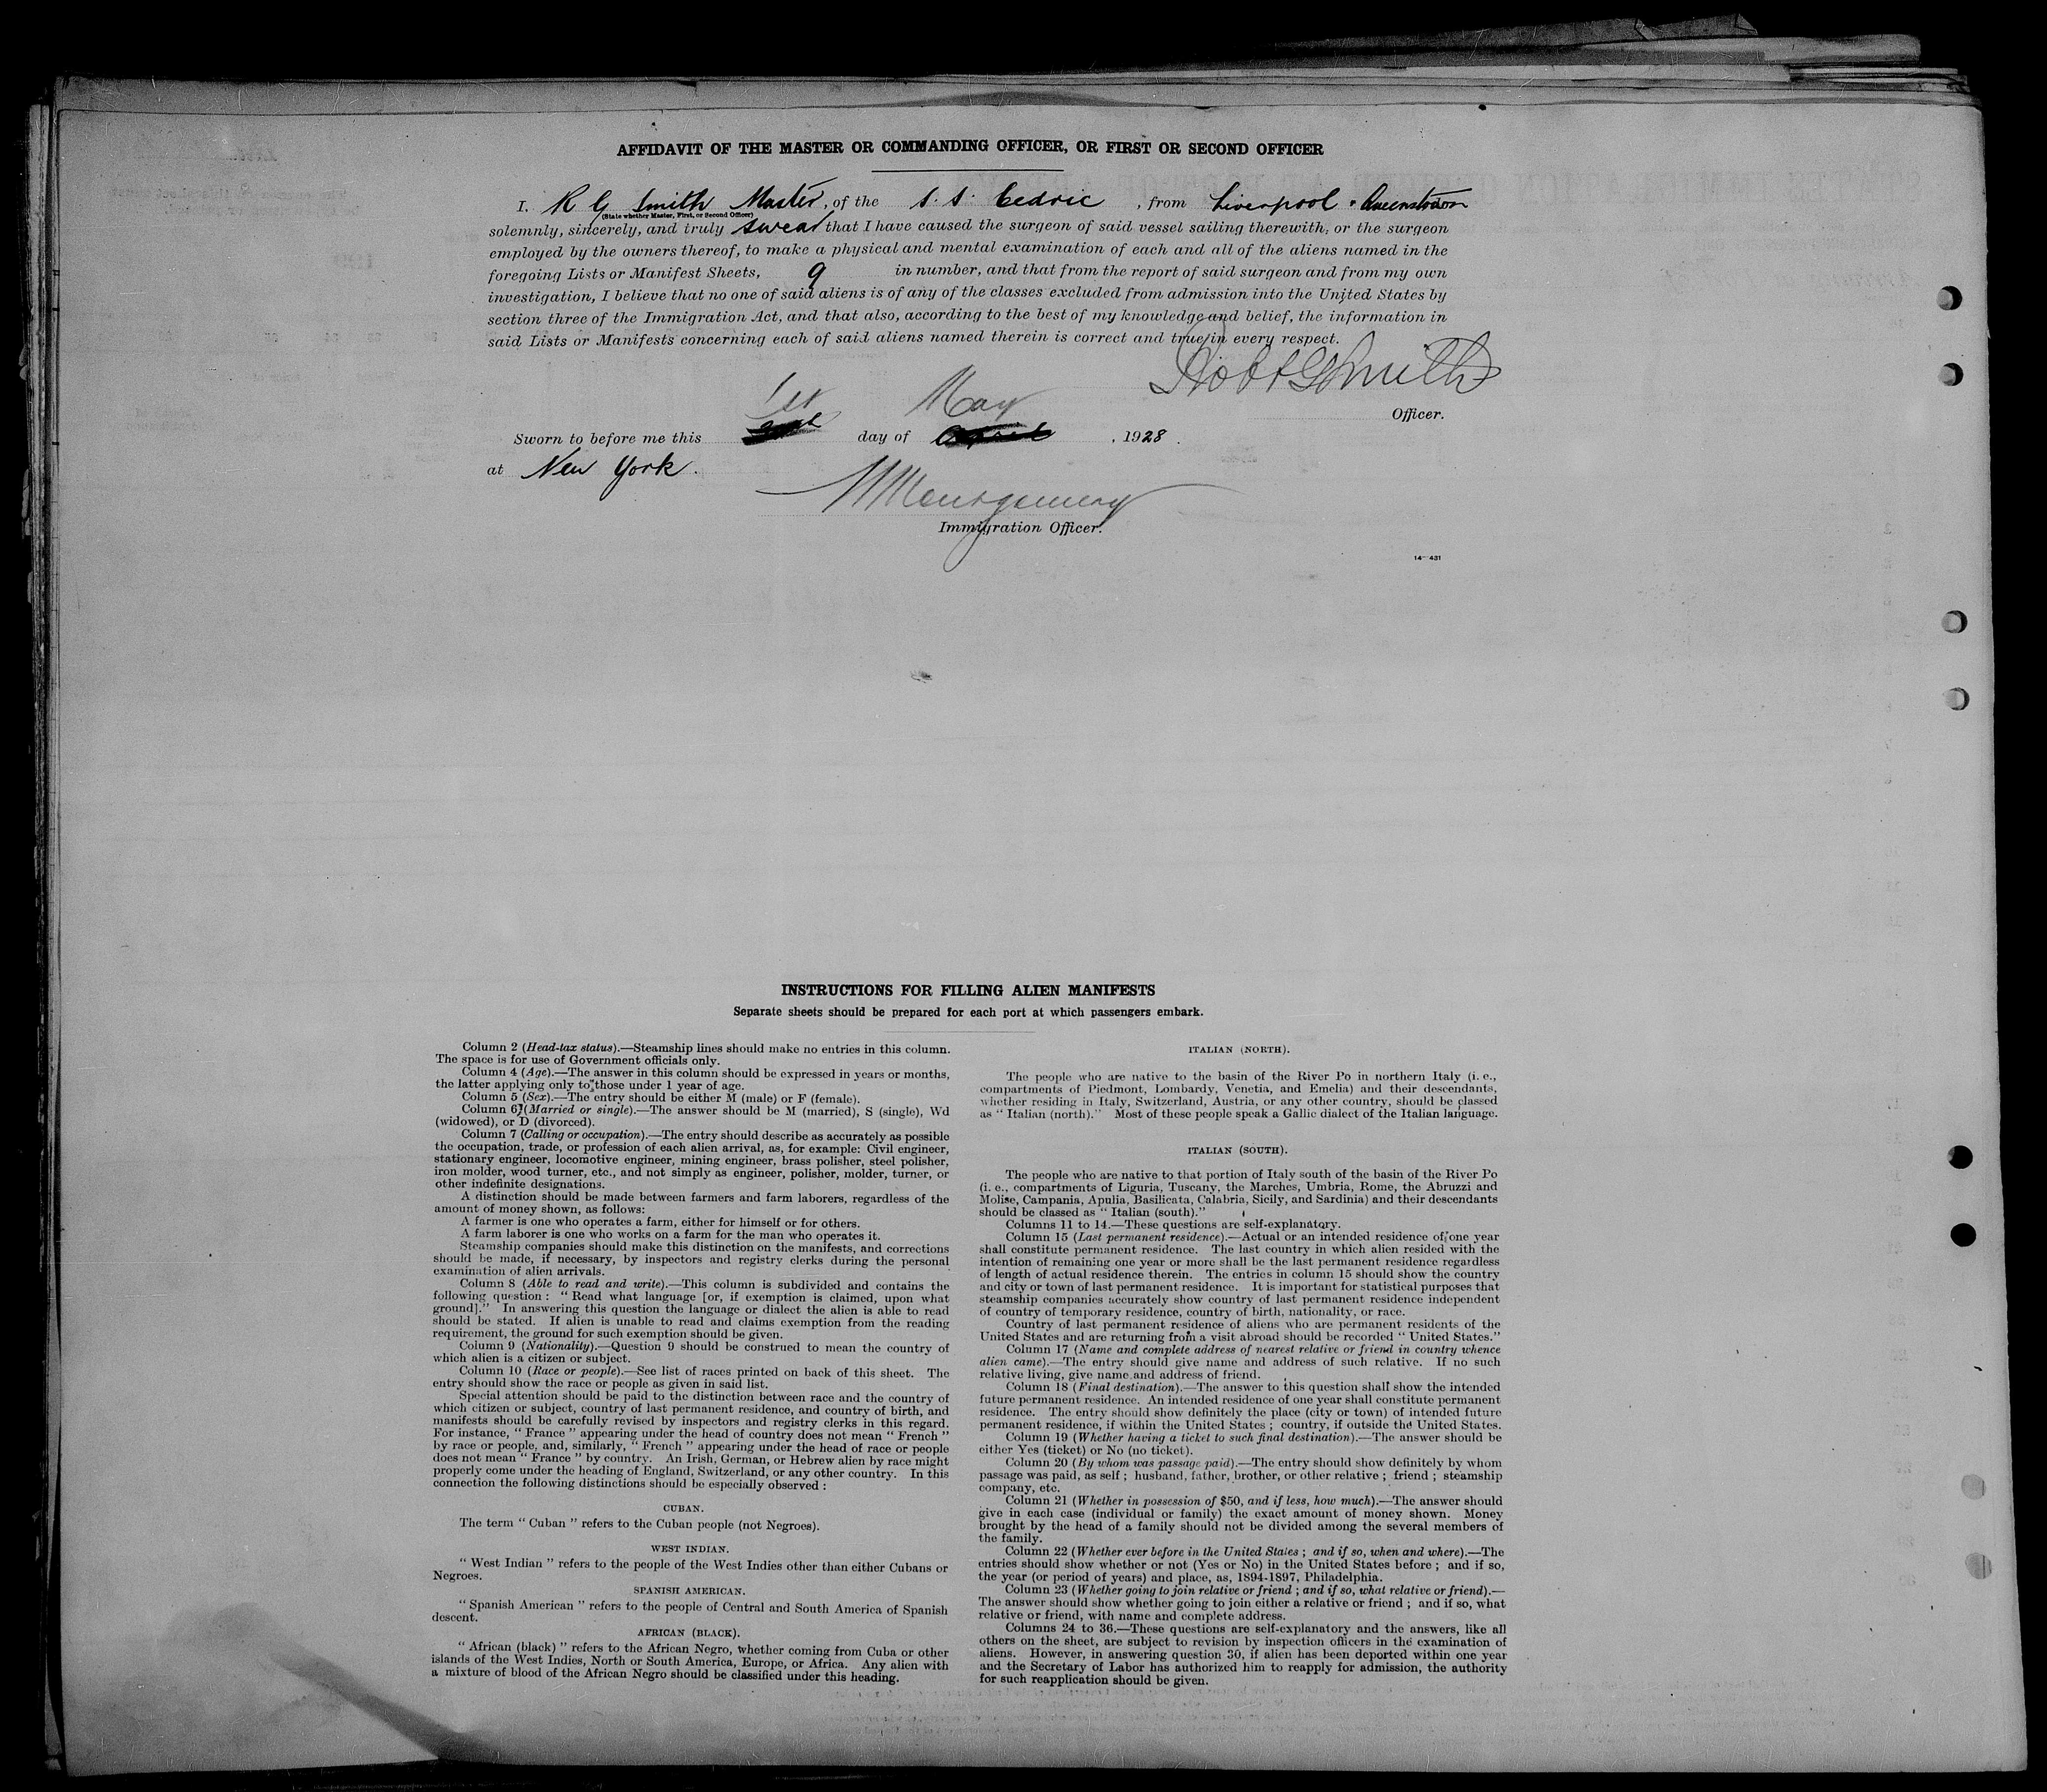 AFFIDAVIT OF THE MASTER OR COMMANDING OFFICER, OR FIRST OR SECOND OFFICER
I, R G Smith Master, of the S.S. Cedric, from Liverpool & Queenstown
(State whether Master, First, or Second Officer)
solemnly, sincerely, and truly swear that I have caused the surgeon of said vessel sailing therewith, or the surgeon
employed by the owners thereof, to make a physical and mental examination of each and all of the aliens named in the
foregoing Lists or Manifest Sheets, 9 in number, and that from the report of said surgeon and from my own
investigation, I believe that no one of said aliens is of any of the classes excluded from admission into the United States by
section three of the Immigration Act, and that also, according to the best of my knowledge and belief, the information in
said Lists or Manifests concerning each of said aliens named therein is correct and true in every respect.
Robt G Smith
Officer.
1st May
Sworn to before me this day of April, 1928.
at New York.
Montgomery
Immigration Officer.
14—431
INSTRUCTIONS FOR FILLING ALIEN MANIFESTS
Separate sheets should be prepared for each port at which passengers embark.
Column 2 (Head-tax status).—Steamship lines should make no entries in this column.
The space is for use of Government officials only.
Column 4 (Age).—The answer in this column should be expressed in years or months,
the latter applying only to those under 1 year of age.
Column 5 (Sex).—The entry should be either M (male) or F (female).
Column 6 (Married or single).—The answer should be M (married), S (single), Wd
(widowed), or D (divorced).
Column 7 (Calling or occupation).—The entry should describe as accurately as possible
the occupation, trade, or profession of each alien arrival, as, for example: Civil engineer,
stationary engineer, locomotive engineer, mining engineer, brass polisher, steel polisher,
iron molder, wood turner, etc., and not simply as engineer, polisher, molder, turner, or
other indefinite designations.
A distinction should be made between farmers and farm laborers, regardless of the
amount of money shown, as follows:
A farmer is one who operates a farm, either for himself or for others.
A farm laborer is one who works on a farm for the man who operates it.
Steamship companies should make this distinction on the manifests, and corrections
should be made, if necessary, by inspectors and registry clerks during the personal
examination of alien arrivals.
Column 8 (Able to read and write).—This column is subdivided and contains the
following question: "Read what language [or, if exemption is claimed, upon what
ground]." In answering this question the language or dialect the alien is able to read
should be stated. If alien is unable to read and claims exemption from the reading
requirement, the ground for such exemption should be given.
Column 9 (Nationality).—Question 9 should be construed to mean the country of
which alien is a citizen or subject.
Column 10 (Race or people).—See list of races printed on back of this sheet. The
entry should show the race or people as given in said list.
Special attention should be paid to the distinction between race and the country of
which citizen or subject, country of last permanent residence, and country of birth, and
manifests should be carefully revised by inspectors and registry clerks in this regard.
For instance, "France" appearing under the head of country does not mean "French"
by race or people, and, similarly, "French" appearing under the head of race or people
does not mean "France" by country. An Irish, German, or Hebrew alien by race might
properly come under the heading of England, Switzerland, or any other country. In this
connection the following distinctions should be especially observed:
CUBAN.
The term "Cuban" refers to the Cuban people (not Negroes).
WEST INDIAN.
"West Indian" refers to the people of the West Indies other than either Cubans or
Negroes.
SPANISH AMERICAN.
"Spanish American" refers to the people of Central and South America of Spanish
descent.
AFRICAN (BLACK).
"African (black)" refers to the African Negro, whether coming from Cuba or other
islands of the West Indies, North or South America, Europe, or Africa. Any alien with
a mixture of blood of the African Negro should be classified under this heading.
ITALIAN (NORTH).
The people who are native to the basin of the River Po in northern Italy (i. e.,
compartments of Piedmont, Lombardy, Venetia, and Emelia) and their descendants,
whether residing in Italy, Switzerland, Austria, or any other country, should be classed
as "Italian (north)." Most of these people speak a Gallic dialect of the Italian language.
ITALIAN (SOUTH).
The people who are native to that portion of Italy south of the basin of the River Po
(i. e., compartments of Liguria, Tuscany, the Marches, Umbria, Rome, the Abruzzi and
Molise, Campania, Apulia, Basilicata, Calabria, Sicily, and Sardinia) and their descendants
should be classed as "Italian (south)."
Columns 11 to 14.—These questions are self-explanatory.
Column 15 (Last permanent residence).—Actual or an intended residence of one year
shall constitute permanent residence. The last country in which alien resided with the
intention of remaining one year or more shall be the last permanent residence regardless
of length of actual residence therein. The entries in column 15 should show the country
and city or town of last permanent residence. It is important for statistical purposes that
steamship companies accurately show country of last permanent residence independent
of country of temporary residence, country of birth, nationality, or race.
Country of last permanent residence of aliens who are permanent residents of the
United States and are returning from a visit abroad should be recorded "United States."
Column 17 (Name and complete address of nearest relative or friend in country whence
alien came).—The entry should give name and address of such relative. If no such
relative living, give name and address of friend.
Column 18 (Final destination).—The answer to this question shall show the intended
future permanent residence. An intended residence of one year shall constitute permanent
residence. The entry should show definitely the place (city or town) of intended future
permanent residence, if within the United States; country, if outside the United States.
Column 19 (Whether having a ticket to such final destination).—The answer should be
either Yes (ticket) or No (no ticket).
Column 20 (By whom was passage paid).—The entry should show definitely by whom
passage was paid, as self; husband, father, brother, or other relative; friend; steamship
company, etc.
Column 21 (Whether in possession of $50, and if less, how much).—The answer should
give in each case (individual or family) the exact amount of money shown. Money
brought by the head of a family should not be divided among the several members of
the family.
Column 22 (Whether ever before in the United States; and if so, when and where).—The
entries should show whether or not (Yes or No) in the United States before; and if so,
the year (or period of years) and place, as, 1894-1897, Philadelphia.
Column 23 (Whether going to join relative or friend; and if so, what relative or friend).—
The answer should show whether going to join either a relative or friend; and if so, what
relative or friend, with name and complete address.
Columns 24 to 36.—These questions are self-explanatory and the answers, like all
others on the sheet, are subject to revision by inspection officers in the examination of
aliens. However, in answering question 30, if alien has been deported within one year
and the Secretary of Labor has authorized him to reapply for admission, the authority
for such reapplication should be given.